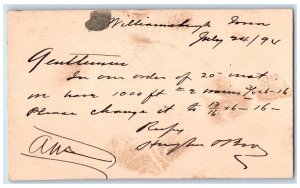 Williamsburgh Iowa
July 24/94
Gentlemen
In our order of 20" inst
we have 1000 ft
Please change it to 16 -
Respy
Hughes & Bro
Ans